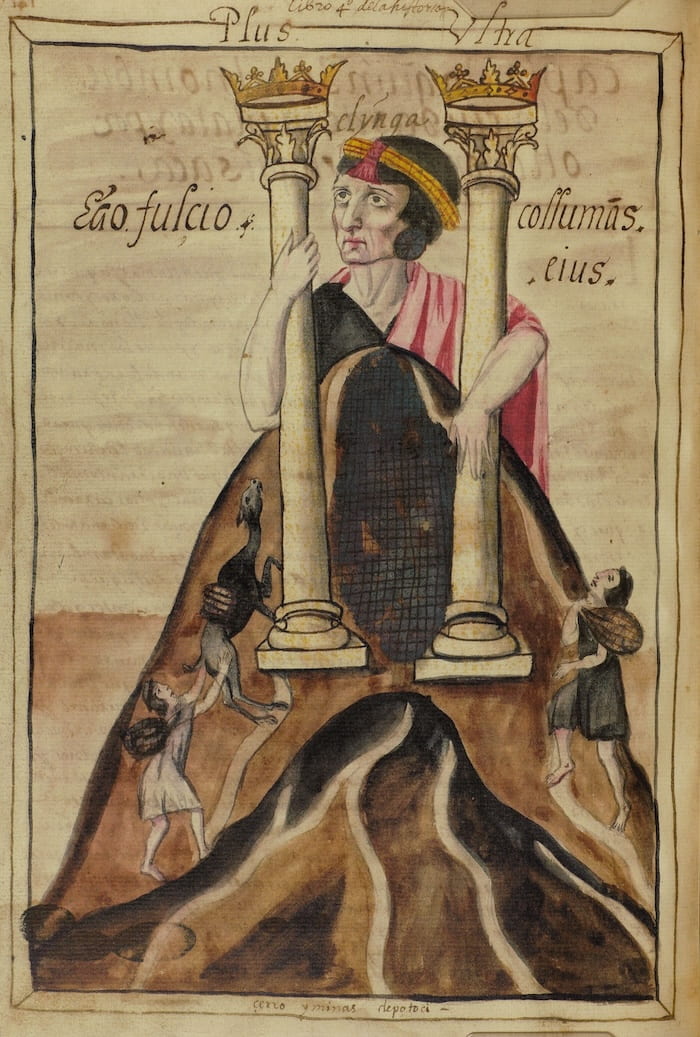 Libro 4º de la historia
Plus Ultra
el ynga
Ego fulcio collumās
eius
çerro y minas de potoçi